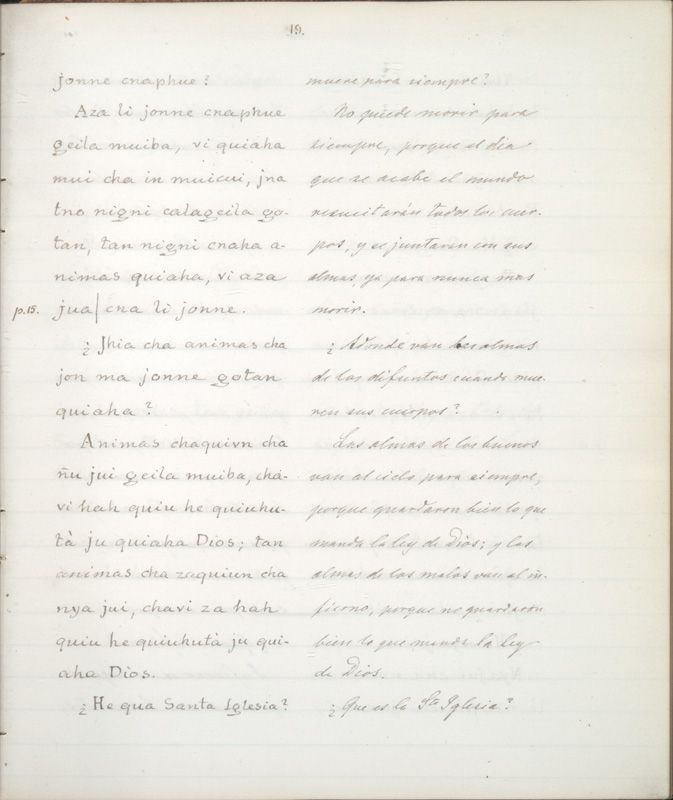 19.
jonne cnaphue?
Aza li jonne cnaphue
geila muiba, vi quiaha
mui cha in muicui, jna
tno nigni calageila go-
tan, tan nigni cnaha a-
nimas quiaha, vi aza
p.15. jua| cna li jonne.
¿Jhia cha animas cha
jon ma jonne gotan
quiaha?
Animas chaquivn cha
ñu jui geila muiba, chá-
vi hah quiu he quiuhu-
tà ju quiaha Dios; tan
animas cha zaquiun cha
nya jui, chavi za hah
quiu he quiuhutà ju qui-
aha Dios.
¿He qua Santa Iglesia?
muere para siempre?
No puede morir para
siempre, porque el dia
que se acabe el mundo
resucitarán todos los cuer-
pos, y se juntaran con sus
almas, ya para nunca mas
morir.
¿Adonde van las almas
de los difuntos cuando mue-
ren sus cuerpos?
Las almas de los buenos
van al cielo para siempre,
porque guardaron bien lo que
manda la ley de Dios; y las
almas de los malos van al in-
fierno, porque no guardaron
bien lo que manda la ley
de Dios.
¿Que es la Sta Iglesia?